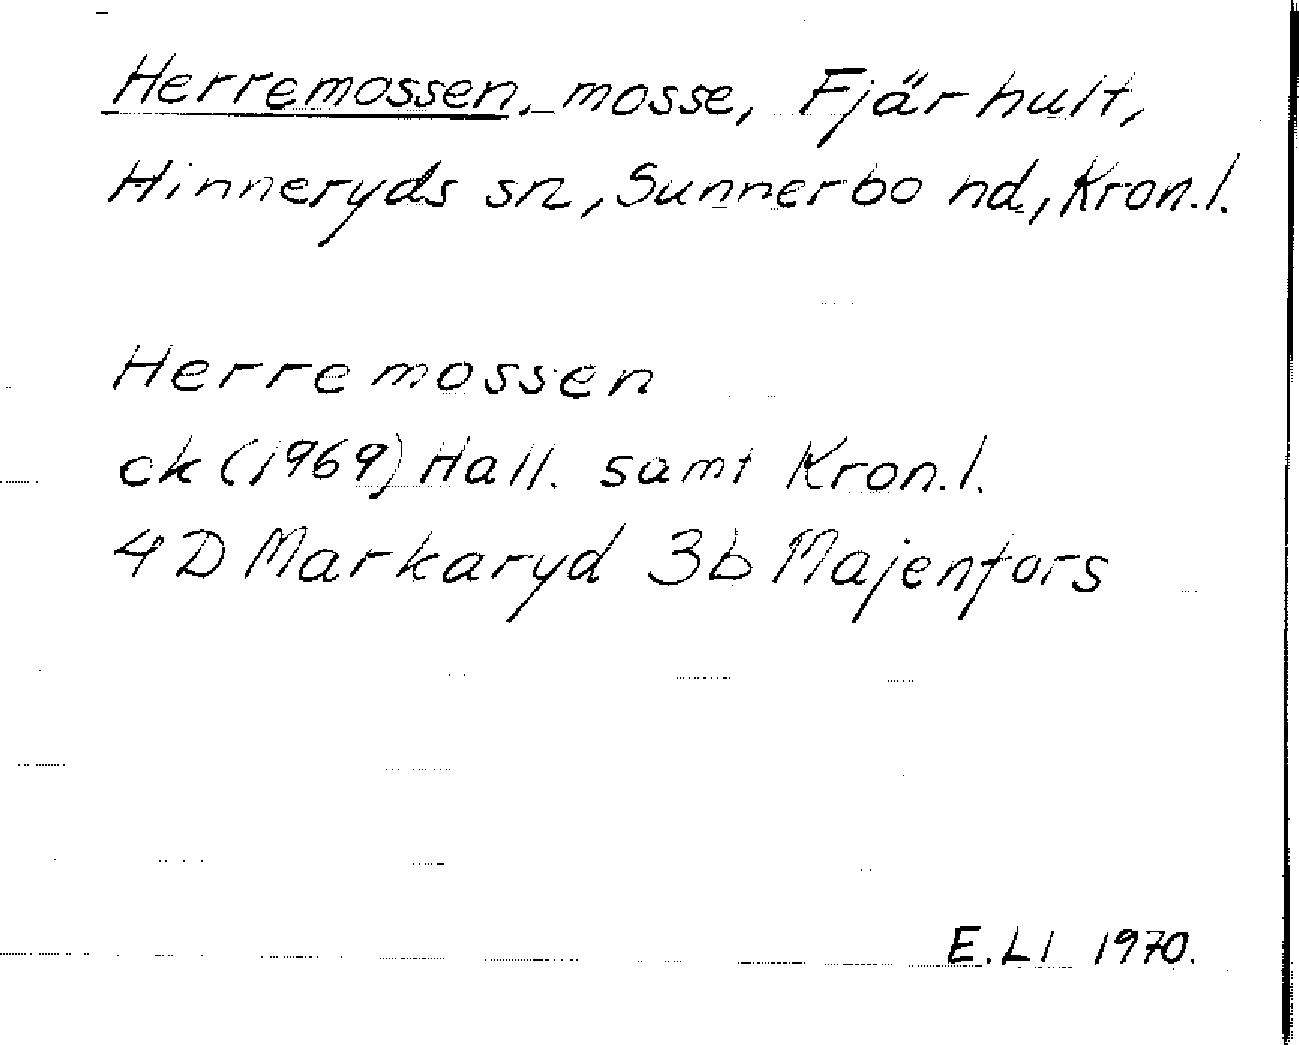 Herremossen, mosse, Fjärhult,
Hinneryds sn, Sunnerbo hd, Kron.l.
Herremossen
ck (1969) Hall. samt Kron.l.
4D Markaryd 3b Majenfors
E.Ll 1970.